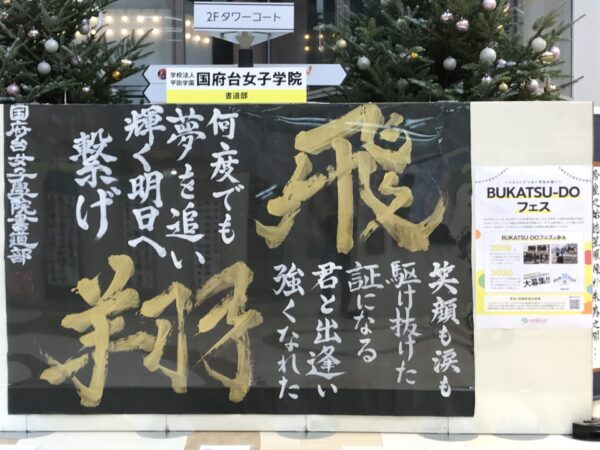 2F タワーコート
学校法人
平田学園
国府台女子学院
書道部
飛翔
笑顔も涙も
駆け抜けた
証になる
君と出逢い
強くなれた
何度でも
夢を追い
輝く明日へ
繋げ
国府台女子學院書道部
BUKATSU-DO
フェス
BUKATSU-DOフェスの歩み
2019
2020
大募集!!